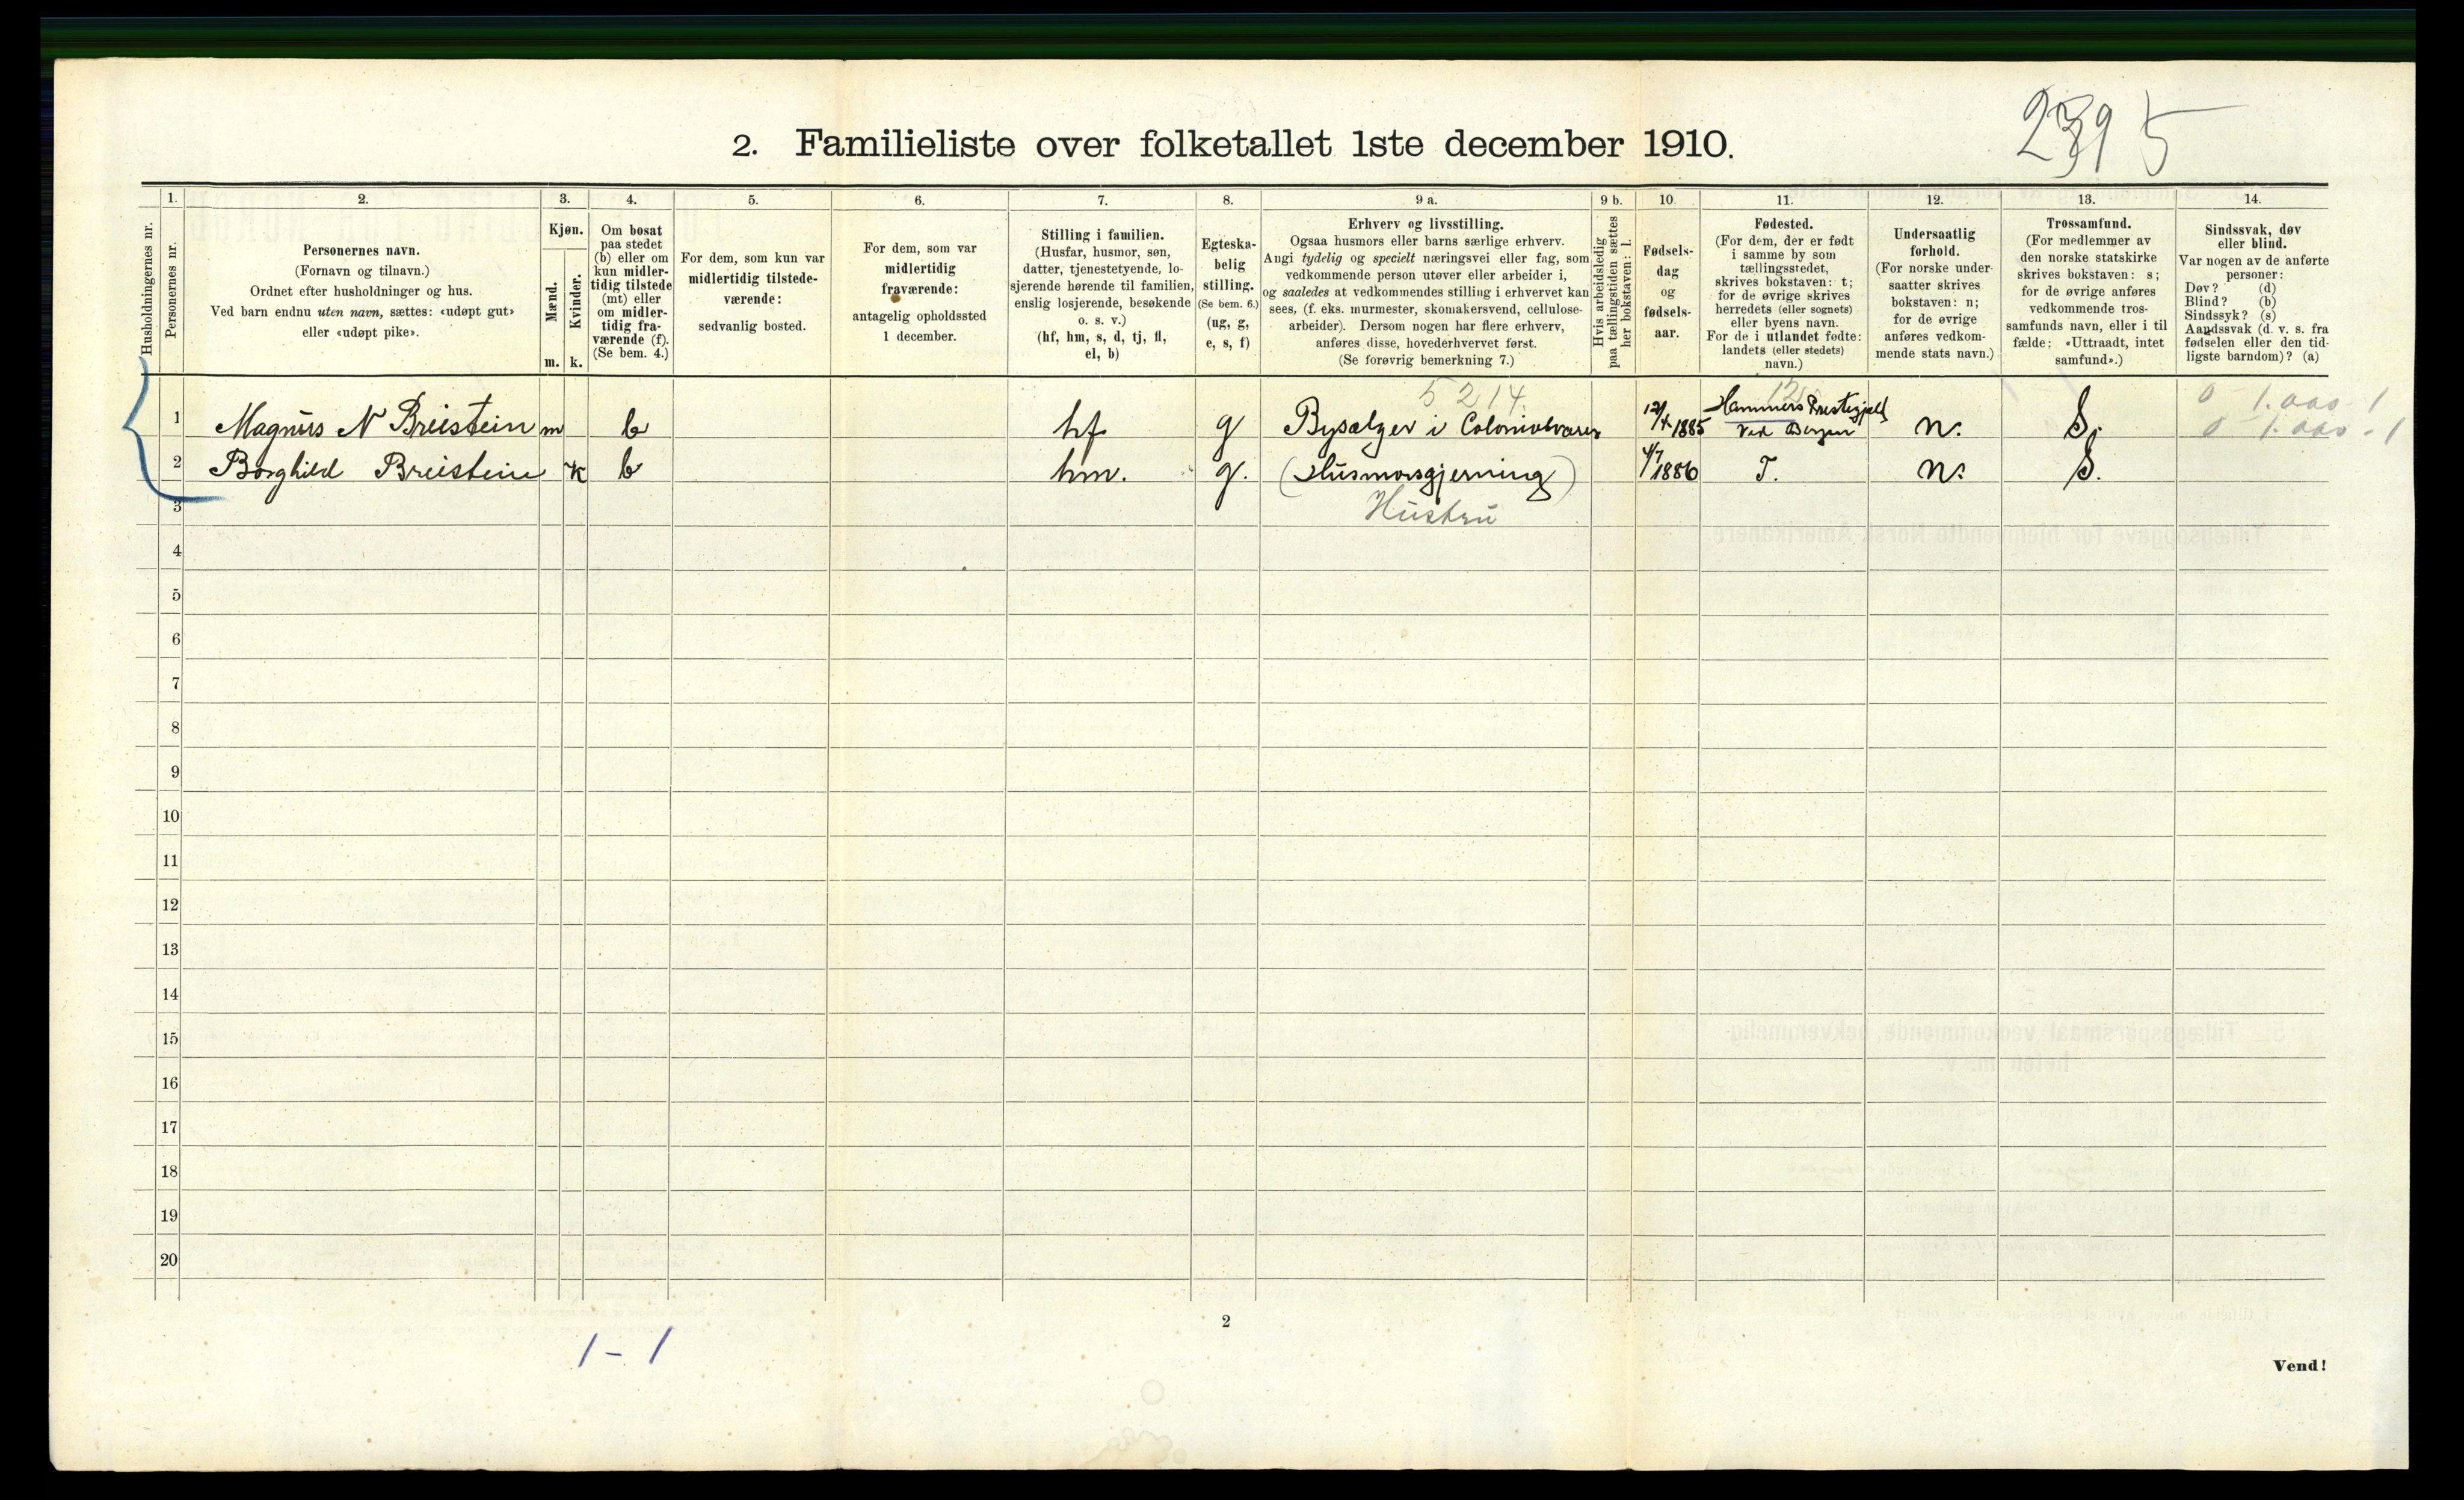 2. Familieliste over folketallet 1ste december 1910.
1. 2. 3. 4. 5. 6. 7. 8. 9 a. 9 b. 10. 11. 12. 13. 14.
Husholdningernes nr.
Personernes nr.
Personernes navn.
(Fornavn og tilnavn.)
Ordnet efter husholdninger og hus.
Ved barn endnu uten navn, sættes: «udøpt gut»
eller «udøpt pike».
Kjøn.
Mænd.
Kvinder.
m. k.
Om bosat
paa stedet
(b) eller om
kun midler-
tidig tilstede
(mt) eller
om midler-
tidig fra-
værende (f).
(Se bem. 4.)
For dem, som kun var
midlertidig tilstede-
værende:
sedvanlig bosted.
For dem, som var
midlertidig
fraværende:
antagelig opholdssted
1 december.
Stilling i familien.
(Husfar, husmor, søn,
datter, tjenestetyende, lo-
sjerende hørende til familien,
enslig losjerende, besøkende
o. s. v.)
(hf, hm, s, d, tj, fl,
el, b)
Egteska-
belig
stilling.
(Se bem. 6.)
(ug, g,
e, s, f)
Erhverv og livsstilling.
Ogsaa husmors eller barns særlige erhverv.
Angi tydelig og specielt næringsvei eller fag, som
vedkommende person utøver eller arbeider i,
og saaledes at vedkommendes stilling i erhvervet kan
sees, (f. eks. murmester, skomakersvend, cellulose-
arbeider). Dersom nogen har flere erhverv,
anføres disse, hovederhvervet først.
(Se forøvrig bemerkning 7.)
Hvis arbeidsledig
paa tællingstiden sættes
her bokstaven: l.
Fødsels-
dag
og
fødsels-
aar.
Fødested.
(For dem, der er født
i samme by som
tællingsstedet,
skrives bokstaven: t;
for de øvrige skrives
herredets (eller sognets)
eller byens navn.
For de i utlandet fødte:
landets (eller stedets)
navn.)
Undersaatlig
forhold.
(For norske under-
saatter skrives
bokstaven: n;
for de øvrige
anføres vedkom-
mende stats navn.)
Trossamfund.
(For medlemmer av
den norske statskirke
skrives bokstaven: s;
for de øvrige anføres
vedkommende tros-
samfunds navn, eller i til
fælde: «Uttraadt, intet
samfund».)
Sindssvak, døv
eller blind.
Var nogen av de anførte
personer:
Døv? (d)
Blind? (b)
Sindssyk? (s)
Aandssvak (d. v. s. fra
fødselen eller den tid-
ligste barndom)? (a)
5 2 14
1 Magnus N Breistein m b hf g Bysælger i Colonialvarer 1885 Hammers Prestegjeld
ved Bergen n. S.
2 Borghild Breistein k b hm. g. (Husmorsgjerning) 4/7 1886 T. n. S.
3 Hustru
4
5
6
7
8
9
10
11
12
13
14
15
16
17
18
19
20
2
1 - 1
Vend!